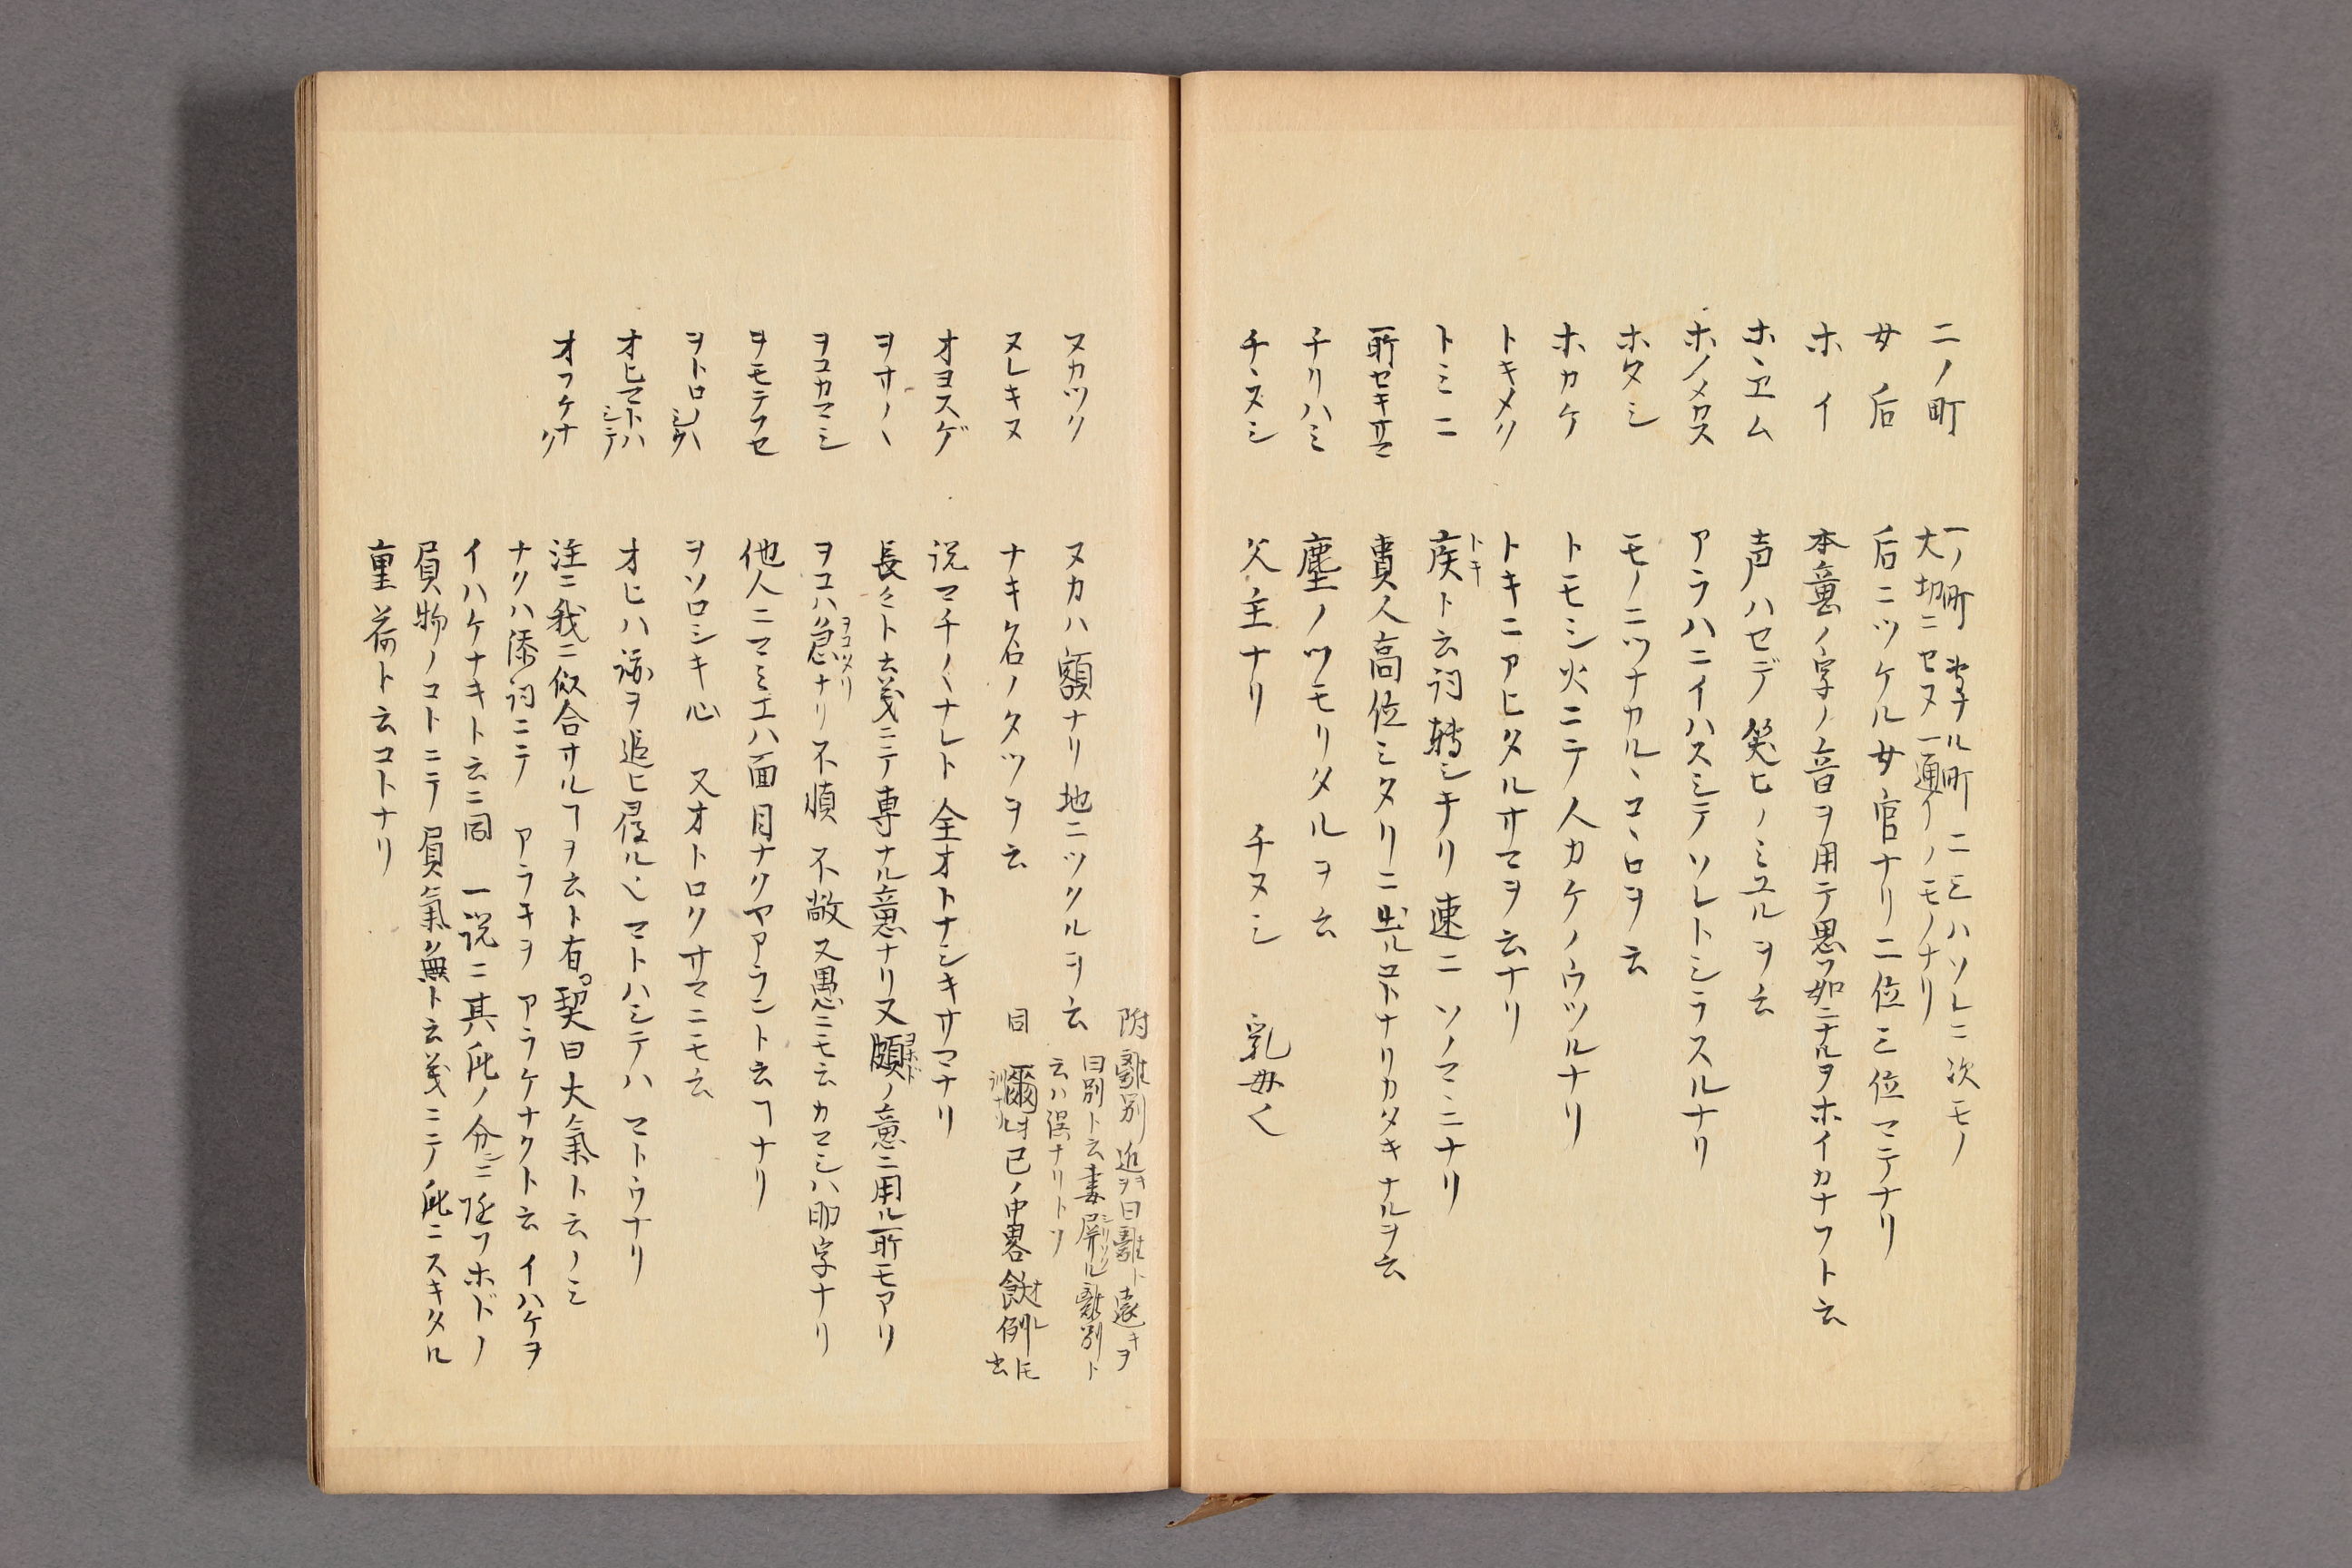 二ノ町　一ノ町　専ナル町　二三ハソレニ次モノ
大切ニセヌ一通イノモノナリ
女后　后ニツケル女官ナリ二位三位マテナリ
ホイ　本意ノ字ノ音ヲ用テ思フ如ニナルヲホイカナフト云
ホヽヱム　声ハセデ笑ヒノミユルヲ云
ホノメカス　アラハニイハスシテソレトシラスルナリ
ホタシ　モノニツナカルヽコヽロヲ云
ホカケ　トモシ火ニテ人カケノウツルナリ
トキメク　トキニアヒタルサマヲ云ナリ
トミニ　疾トキト云詞転シキリ速ニソノマヽニナリ
所セキサマ　貴人高位ミタリニ出ルコトナリカタキナルヲ云
チリハミ　塵ノツモリタルヲ云
チヽヌシ　父主ナリ　チヌシ　乳母〱
附　離別　近キヲ曰離ト遠キヲ
曰別ト云妻屏シリソクル離別ト
云ハ誤ナリトソ
ヌカツク　ヌカハ額ナリ地ニツクルヲ云
ヌレキヌ　ナキ名ノタツヲ云　同　爾オ已ノ中畧餓オレ例ニモ云
オヨスゲ　説マチ〱ナレト全オトナシキサマナリ
ヲサ〱　長クト云義ニテ専ナル意ナリ又頗ヨホドノ意ニ用ル所モアリ
ヲコカマシ　ヲコハ急ヲコツメリナリ不慎　不敬又愚ニモ云カマシハ助字ナリ
ヲモテフセ　他人ニマミエハ面目ナクヤアラント云ヿナリ
ヲトロシクハシク　ヲソロシキ心　又オトロクサマニモ云
オヒマトハシテ　オヒハ跡ヲ追ヒ尋ルヽマトハシテハマトウナリ
オフケナク　注ニ我ニ似合サルヿヲ云ト有契曰大氣ト云ノミ
ナクハ添詞ニテ　アラキヲ　アラケナクト云　イハケヲ
イハケナキト云ニ同　一説ニ其身ノ分ニ従フホドノ
負物ノコトニテ負氣ク無ト云義ニテ身ニスキタル
重荷ト云コトナリ